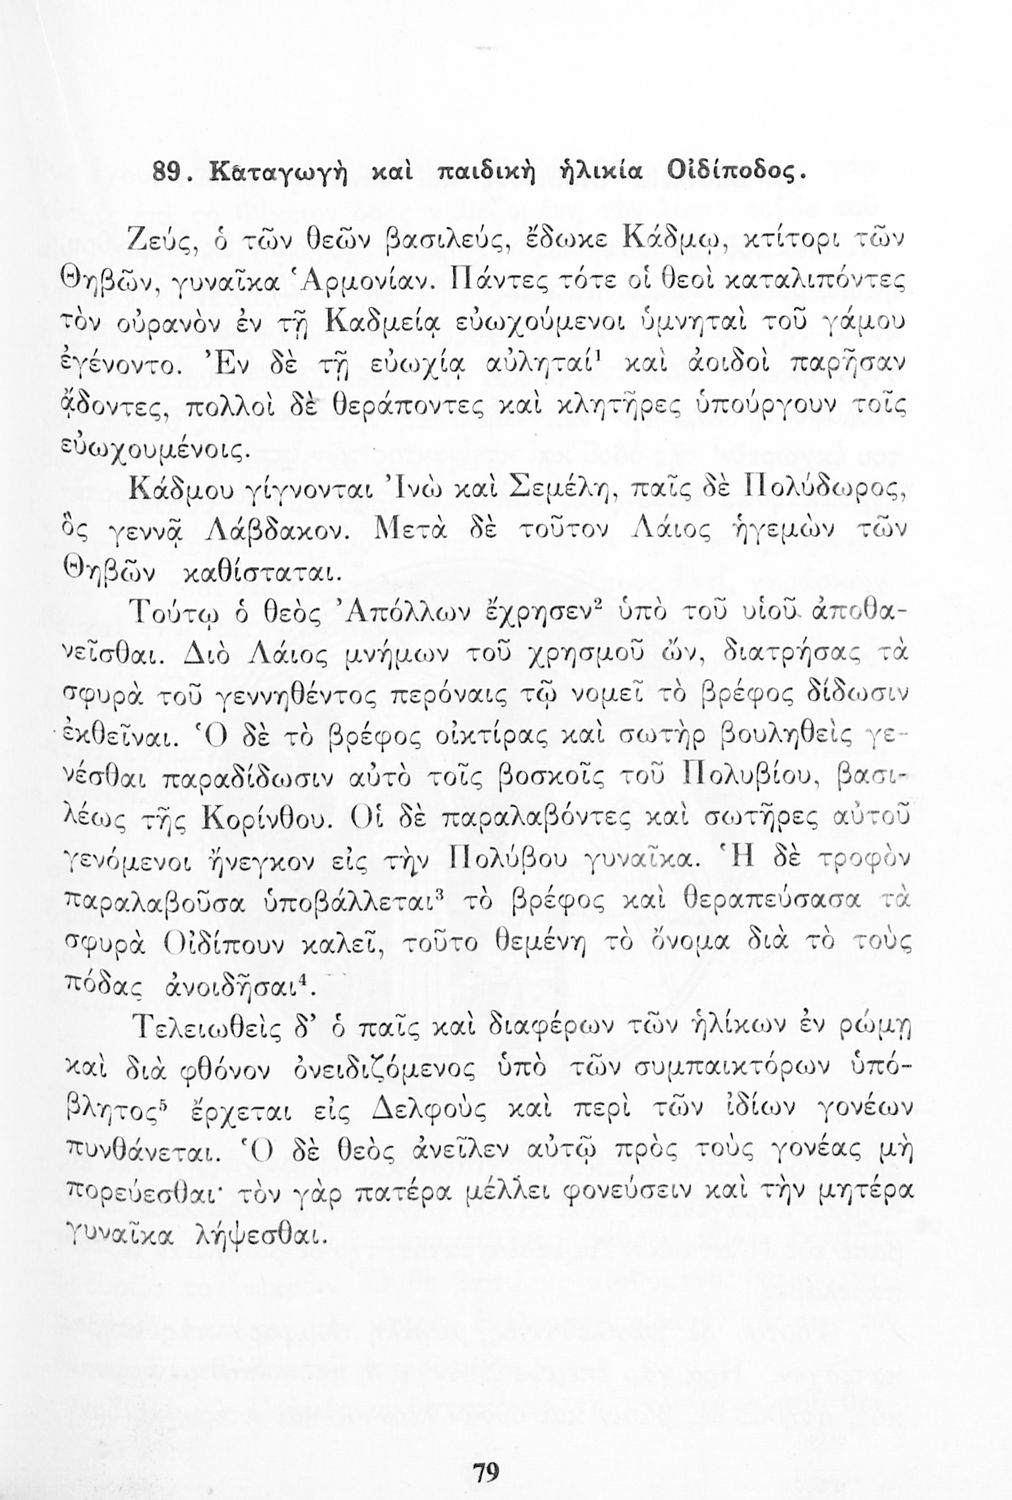 89. Καταγωγὴ καὶ παιδικὴ ἡλικία Οἰδίποδος.
Ζεύς, ὁ τῶν θεῶν βασιλεύς, ἔδωκε Κάδμῳ, κτίτορι τῶν
Θηβῶν, γυναῖκα Ἁρμονίαν. Πάντες τότε οἱ θεοὶ καταλιπόντες
τὸν οὐρανὸν ἐν τῇ Καδμείᾳ εὐωχούμενοι ὑμνηταὶ τοῦ γάμου
ἐγένοντο. Ἐν δὲ τῇ εὐωχίᾳ αὐληταί¹ καὶ ἀοιδοὶ παρῆσαν
ᾄδοντες, πολλοὶ δὲ θεράποντες καὶ κλητῆρες ὑπούργουν τοῖς
εὐωχουμένοις.
Κάδμου γίγνονται Ἰνὼ καὶ Σεμέλη, παῖς δὲ Πολύδωρος,
ὃς γεννᾷ Λάβδακον. Μετὰ δὲ τοῦτον Λάιος ἡγεμὼν τῶν
Θηβῶν καθίσταται.
Τούτῳ ὁ θεὸς Ἀπόλλων ἔχρησεν² ὑπὸ τοῦ υἱοῦ ἀποθα-
νεῖσθαι. Διὸ Λάιος μνήμων τοῦ χρησμοῦ ὤν, διατρήσας τὰ
σφυρὰ τοῦ γεννηθέντος περόναις τῷ νομεῖ τὸ βρέφος δίδωσιν
ἐκθεῖναι. Ὁ δὲ τὸ βρέφος οἰκτίρας καὶ σωτὴρ βουληθεὶς γε-
νέσθαι παραδίδωσιν αὐτὸ τοῖς βοσκοῖς τοῦ Πολυβίου, βασι-
λέως τῆς Κορίνθου. Οἱ δὲ παραλαβόντες καὶ σωτῆρες αὐτοῦ
γενόμενοι ἤνεγκον εἰς τὴν Πολύβου γυναῖκα. Ἡ δὲ τροφὸν
παραλαβοῦσα ὑποβάλλεται³ τὸ βρέφος καὶ θεραπεύσασα τὰ
σφυρὰ Οἰδίπουν καλεῖ, τοῦτο θεμένη τὸ ὄνομα διὰ τὸ τοὺς
πόδας ἀνοιδῆσαι⁴.
Τελειωθεὶς δ' ὁ παῖς καὶ διαφέρων τῶν ἡλίκων ἐν ρώμῃ
καὶ διὰ φθόνον ὀνειδιζόμενος ὑπὸ τῶν συμπαικτόρων ὑπό-
βλητος⁵ ἔρχεται εἰς Δελφοὺς καὶ περὶ τῶν ἰδίων γονέων
πυνθάνεται. Ὁ δὲ θεὸς ἀνεῖλεν αὐτῷ πρὸς τοὺς γονέας μὴ
πορεύεσθαι· τὸν γὰρ πατέρα μέλλει φονεύσειν καὶ τὴν μητέρα
γυναῖκα λήψεσθαι.
79